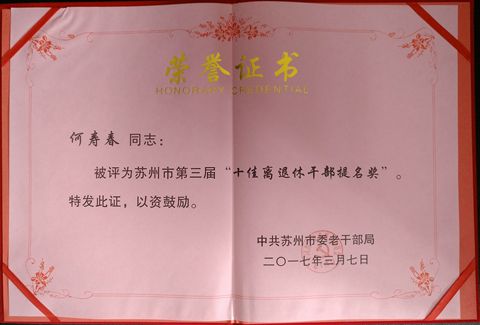 荣誉证书
HONORARY CREDENTIAL
何寿春 同志:
被评为苏州市第三届“十佳离退休干部提名奖”。
特发此证,以资鼓励。
中共苏州市委老干部局
二〇一七年三月七日